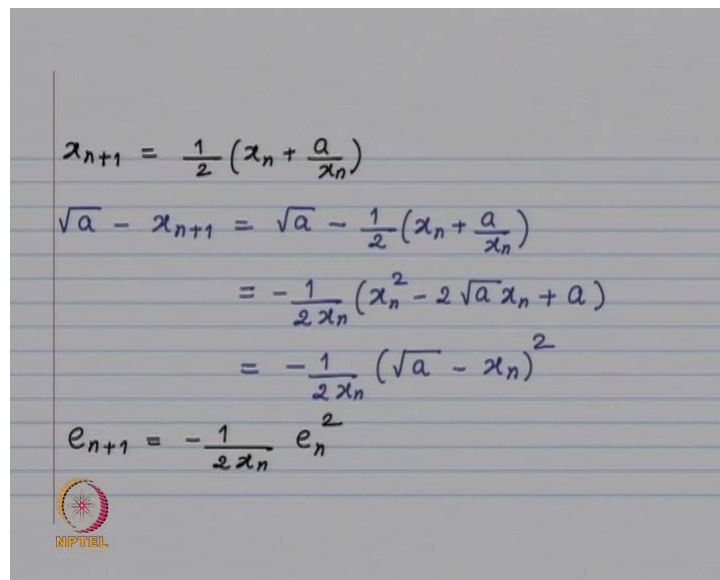 xₙ₊₁ = 1/2 (xₙ + a/xₙ)
√a - xₙ₊₁ = √a - 1/2 (xₙ + a/xₙ)
= - 1/(2xₙ) (xₙ² - 2√a xₙ + a)
= - 1/(2xₙ) (√a - xₙ)²
eₙ₊₁ = - 1/(2xₙ) eₙ²
NPTEL